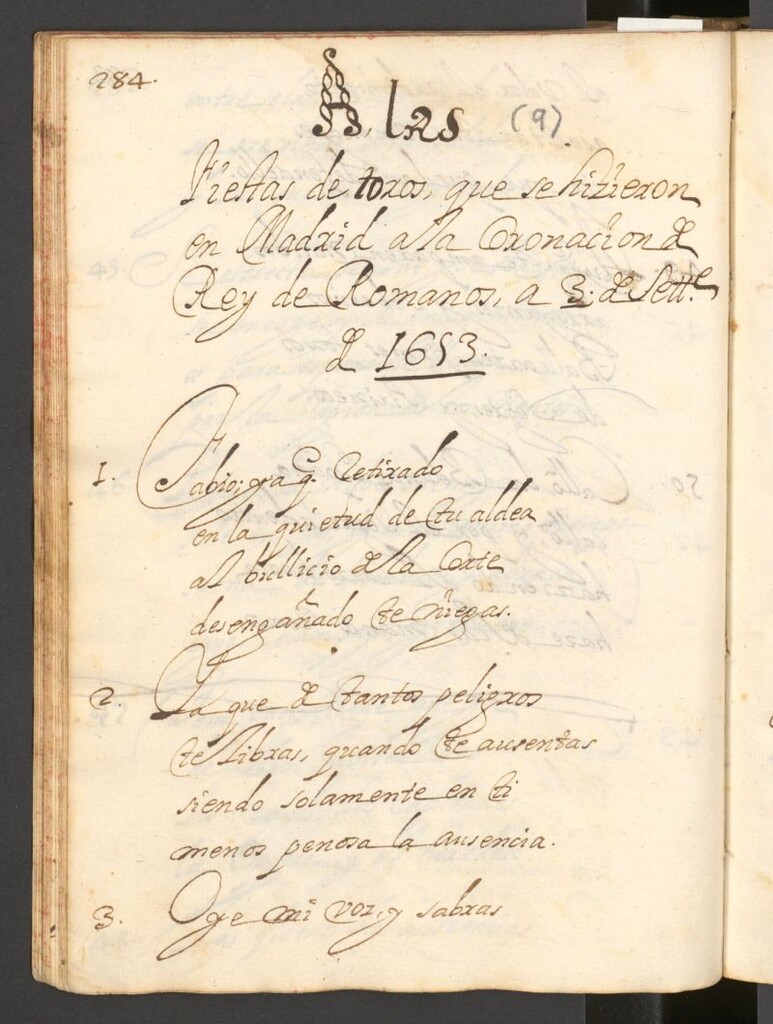 284.
A, las (9)
Fiestas de toros, que se hizieron
en Madrid a la Coronacion de
Rey de Romanos, a 3. de Sett.e
de 1653.
1. Fabio; ya q. retirado
en la quietud de tu aldea
al bullicio de la Corte
desengañado te niegas.
2. Ya que de tantos peligros
te libras, quando te ausentas
siendo solamente en ti
menos penosa la ausencia.
3. Oye mi voz, y sabras